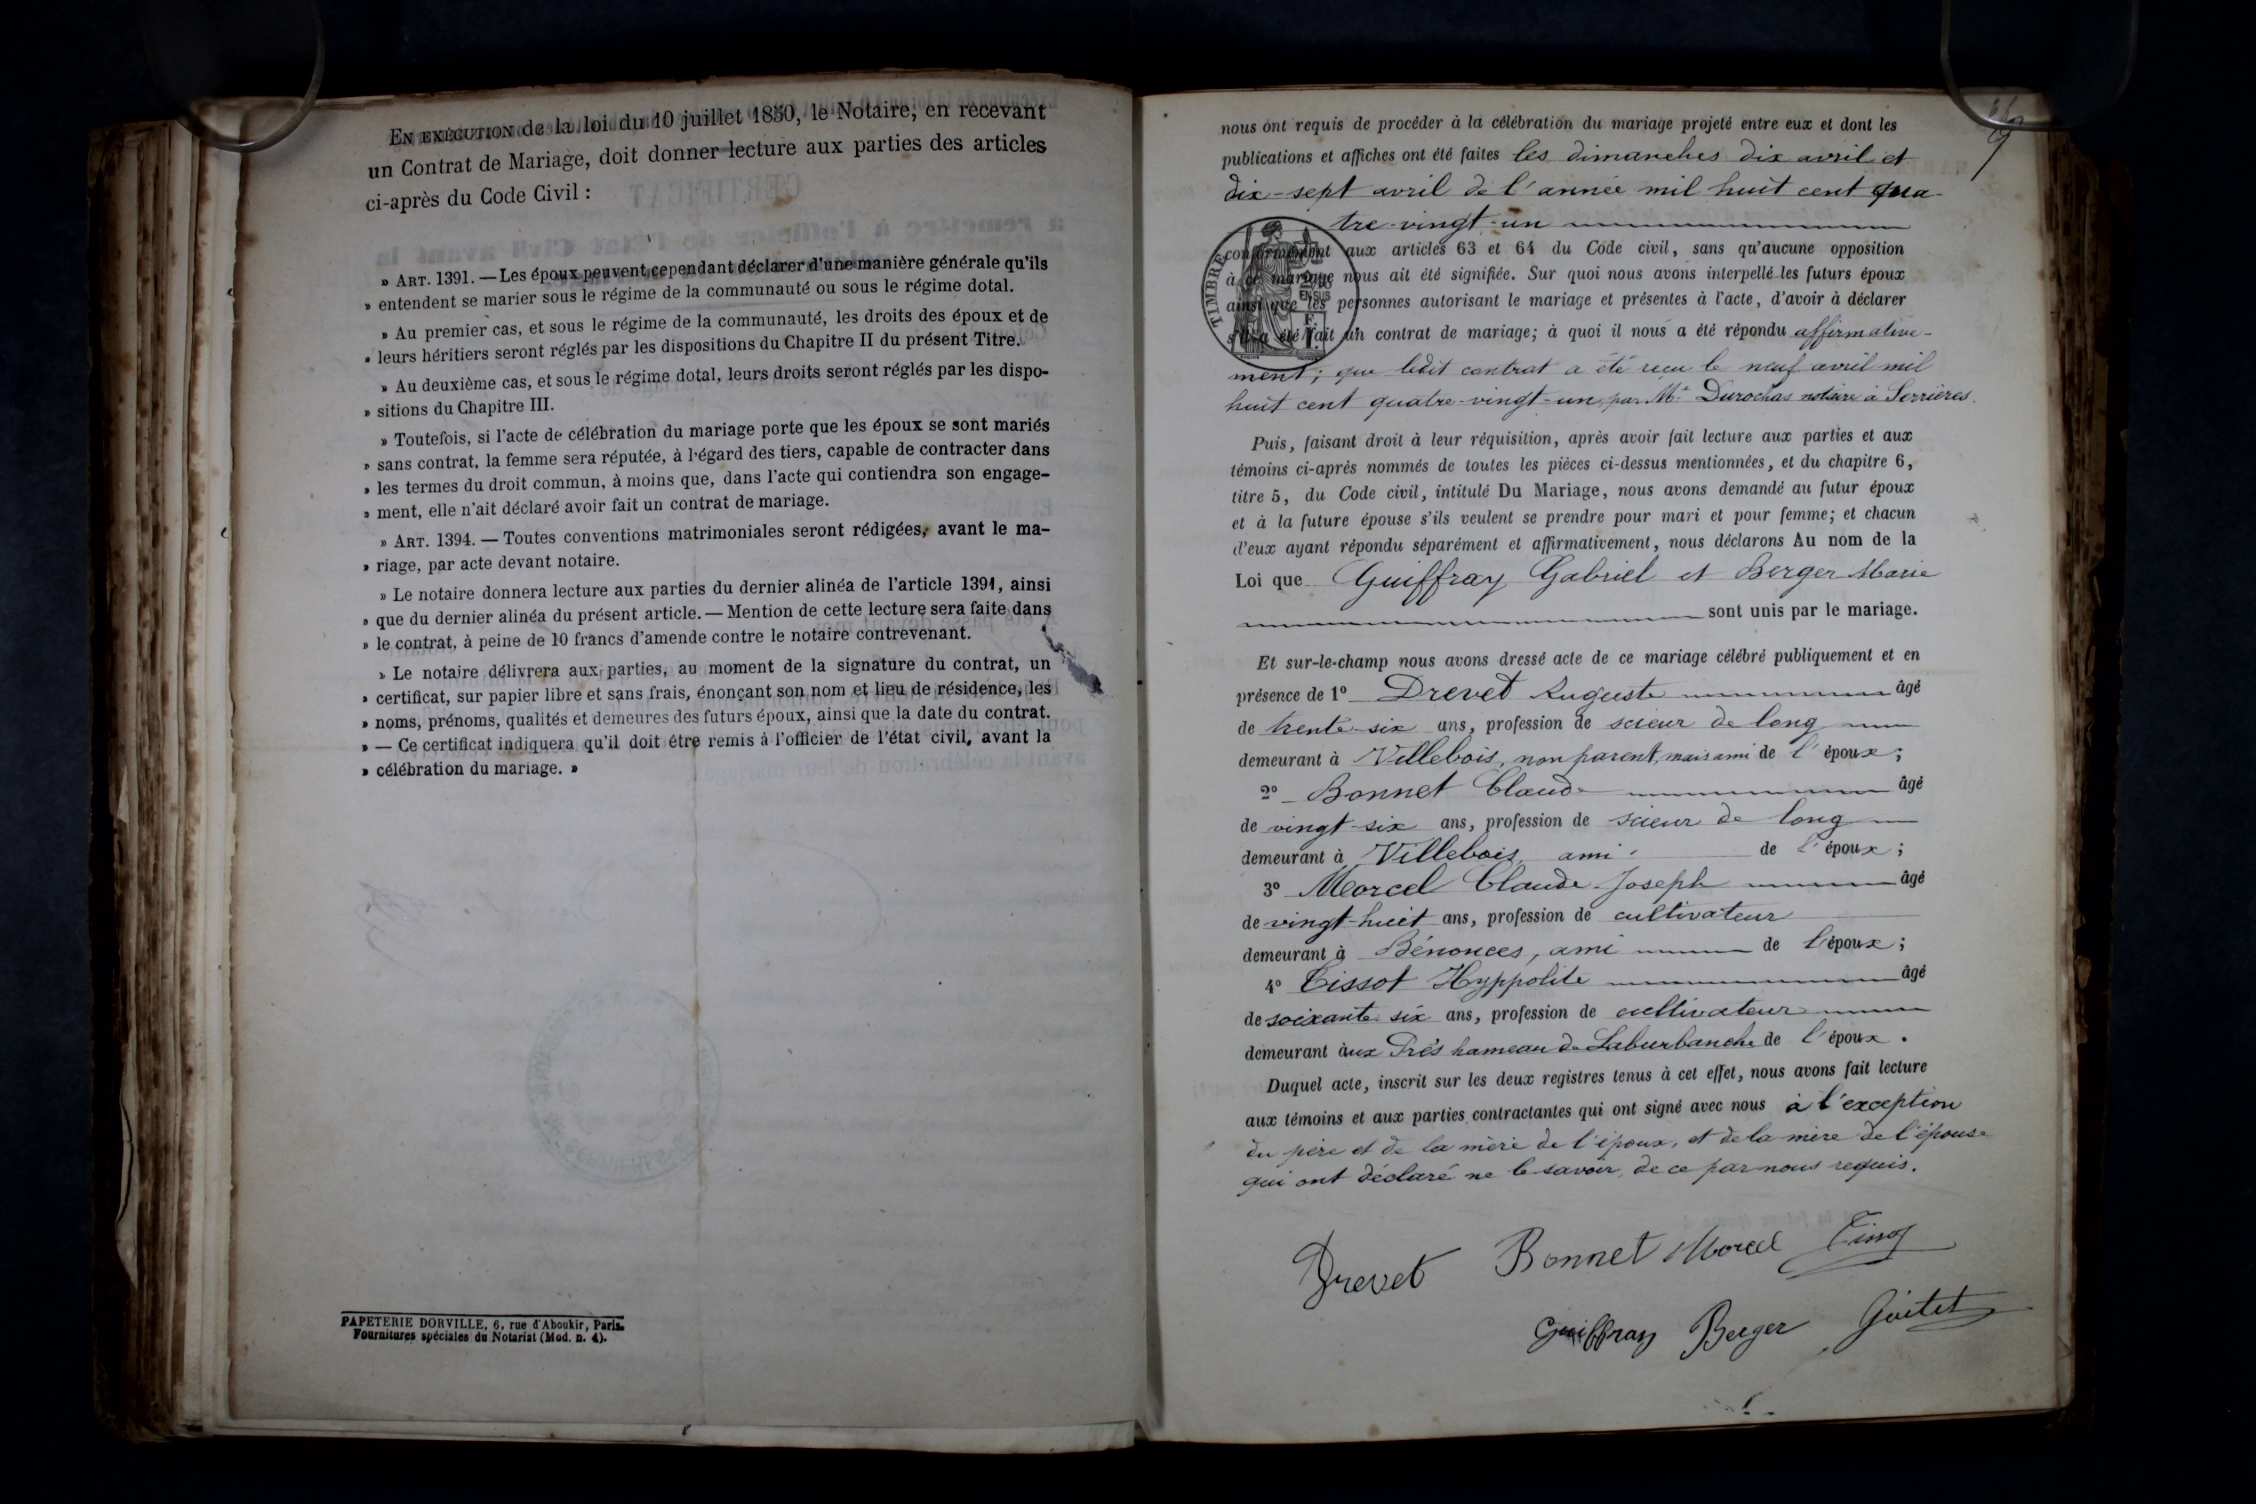 EN EXÉCUTION de la loi du 10 juillet 1850, le Notaire, en recevant
un Contrat de Mariage, doit donner lecture aux parties des articles
ci-après du Code Civil :
» ART. 1391. — Les époux peuvent cependant déclarer d'une manière générale qu'ils
» entendent se marier sous le régime de la communauté ou sous le régime dotal.
» Au premier cas, et sous le régime de la communauté, les droits des époux et de
» leurs héritiers seront réglés par les dispositions du Chapitre II du présent Titre.
» Au deuxième cas, et sous le régime dotal, leurs droits seront réglés par les dispo-
» sitions du Chapitre III.
» Toutefois, si l'acte de célébration du mariage porte que les époux se sont mariés
» sans contrat, la femme sera réputée, à l'égard des tiers, capable de contracter dans
» les termes du droit commun, à moins que, dans l'acte qui contiendra son engage-
» ment, elle n'ait déclaré avoir fait un contrat de mariage.
» ART. 1394. — Toutes conventions matrimoniales seront rédigées, avant le ma-
» riage, par acte devant notaire.
» Le notaire donnera lecture aux parties du dernier alinéa de l'article 1391, ainsi
» que du dernier alinéa du présent article. — Mention de cette lecture sera faite dans
» le contrat, à peine de 10 francs d'amende contre le notaire contrevenant.
» Le notaire délivrera aux parties, au moment de la signature du contrat, un
» certificat, sur papier libre et sans frais, énonçant son nom et lieu de résidence, les
» noms, prénoms, qualités et demeures des futurs époux, ainsi que la date du contrat.
» — Ce certificat indiquera qu'il doit être remis à l'officier de l'état civil, avant la
» célébration du mariage. »
PAPETERIE DORVILLE, 6, rue d'Aboukir, Paris.
Fournitures spéciales du Notariat (Mod. n. 4).
nous ont requis de procéder à la célébration du mariage projeté entre eux et dont les
publications et affiches ont été faites les dimanches dix avril et
dix-sept avril de l'année mil huit cent qua-
tre-vingt-un
conformément aux articles 63 et 64 du Code civil, sans qu'aucune opposition
à ce mariage nous ait été signifiée. Sur quoi nous avons interpellé les futurs époux
ainsi que les personnes autorisant le mariage et présentes à l'acte, d'avoir à déclarer
s'il a été fait un contrat de mariage; à quoi il nous a été répondu affirmative-
ment; que ledit contrat a été reçu le neuf avril mil
huit cent quatre-vingt-un, par Me Durochas notaire à Serrières.
Puis, faisant droit à leur réquisition, après avoir fait lecture aux parties et aux
témoins ci-après nommés de toutes les pièces ci-dessus mentionnées, et du chapitre 6,
titre 5, du Code civil, intitulé Du Mariage, nous avons demandé au futur époux
et à la future épouse s'ils veulent se prendre pour mari et pour femme; et chacun
d'eux ayant répondu séparément et affirmativement, nous déclarons Au nom de la
Loi que Guiffray Gabriel et Berger Marie
sont unis par le mariage.
Et sur-le-champ nous avons dressé acte de ce mariage célébré publiquement et en
présence de 1º Drevet Auguste âgé
de trente-six ans, profession de scieur de long
demeurant à Villebois, non parent, mais ami de l'époux;
2º Bonnet Claude âgé
de vingt-six ans, profession de scieur de long
demeurant à Villebois, ami de l'époux;
3º Morcel Claude Joseph âgé
de vingt-huit ans, profession de cultivateur
demeurant à Bénonces, ami de l'époux;
4º Tissot Hyppolite âgé
de soixante six ans, profession de cultivateur
demeurant aux Prés hameau de Laburbanche de l'époux.
Duquel acte, inscrit sur les deux registres tenus à cet effet, nous avons fait lecture
aux témoins et aux parties contractantes qui ont signé avec nous à l'exception
du père et de la mère de l'époux, et de la mère de l'épouse
qui ont déclaré ne le savoir, de ce par nous requis.
Drevet Bonnet Morcel Tissot
Guiffray Berger Guitet